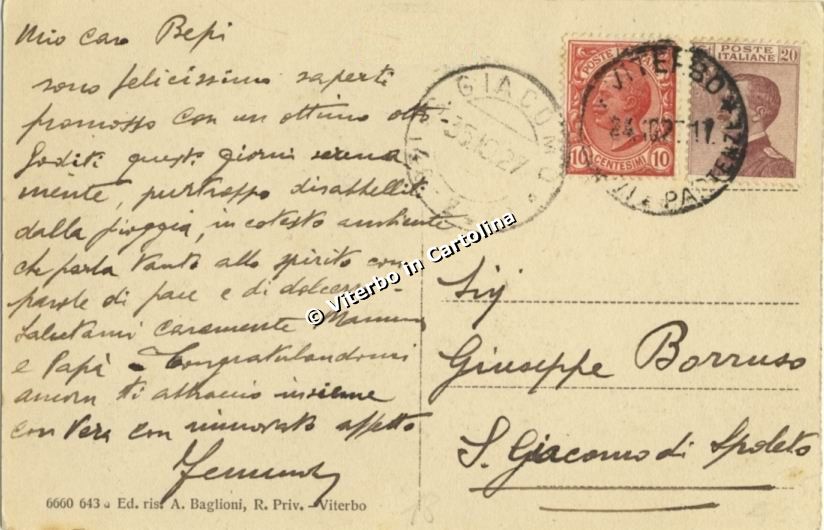 Mio caro Bepi
sono felicissimo saperti
promosso con un ottimo otto
Goditi questi giorni serena
mente, purtroppo disabbelliti
dalla pioggia, in cotesto ambiente
che parla tanto allo spirito con
parole di pace e di dolcezza -
Salutami caramente Mamma
e Papà - Congratulandomi
ancora ti abbraccio insieme
con Vera con immutato affetto
GIACOMO
25.10.27
VITERBO
24.10.27.17
PARTENZE
POSTE ITALIANE 20
POSTE
10 CENTESIMI 10
Sig
Giuseppe Borruso
S. Giacomo di Spoleto
© Viterbo in Cartolina
6660 643 a Ed. ris. A. Baglioni, R. Priv. - Viterbo